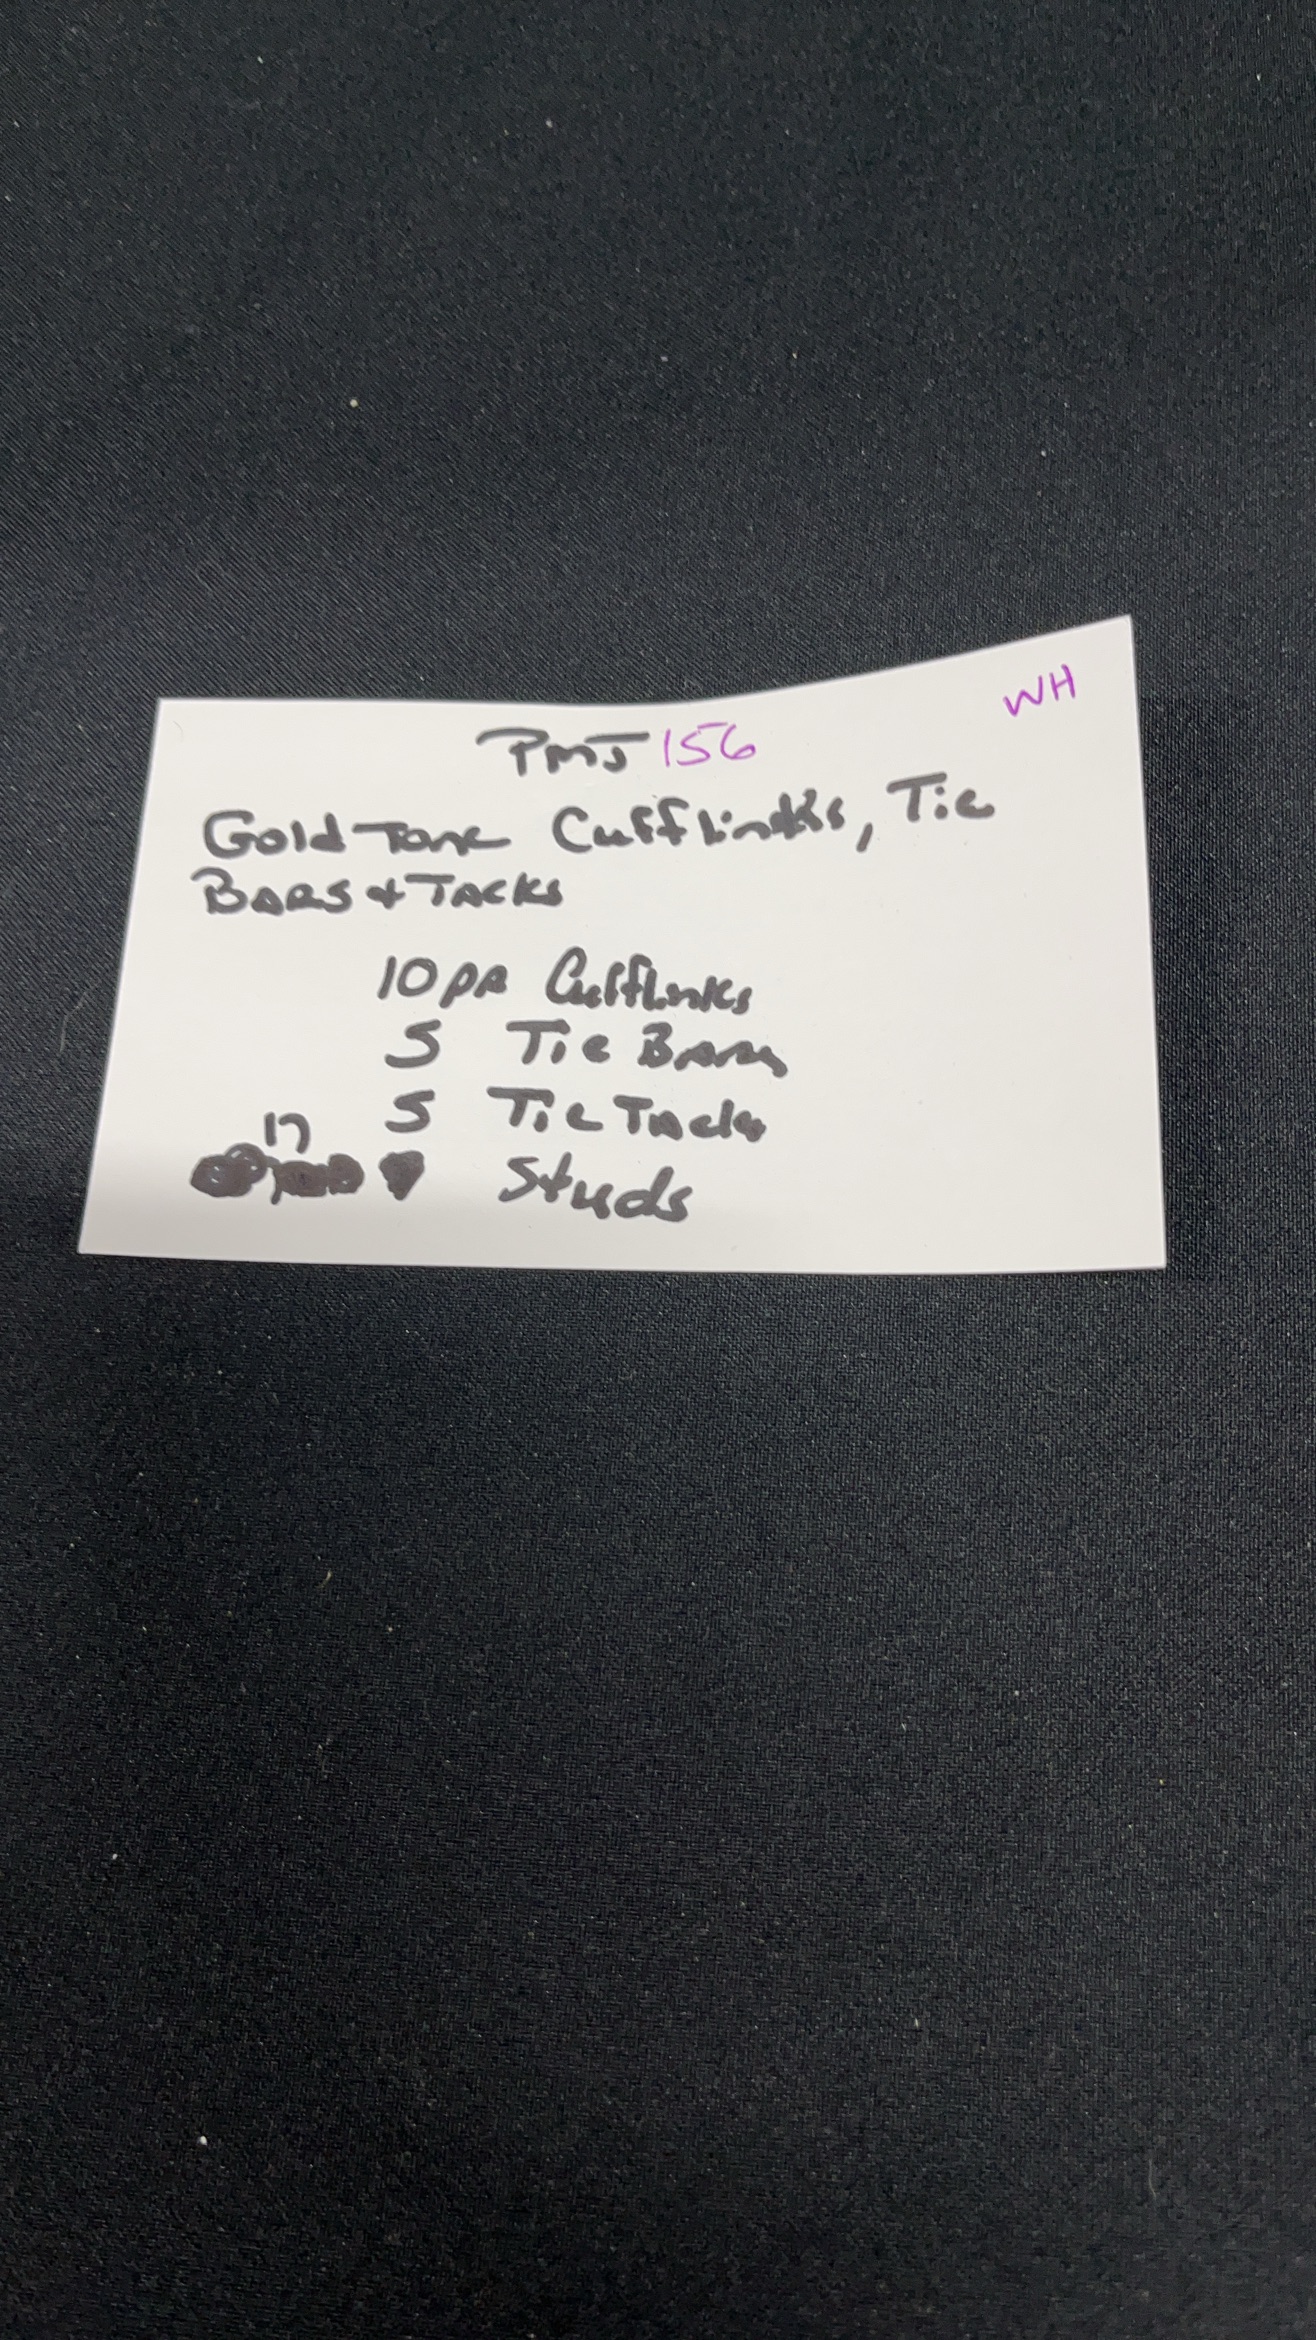 WH
PMJ 156
Gold Tone Cufflinks, Tie
BARS & TACKS
10 PR Cufflinks
5 Tie Bars
5 Tie Tacks
17
Studs